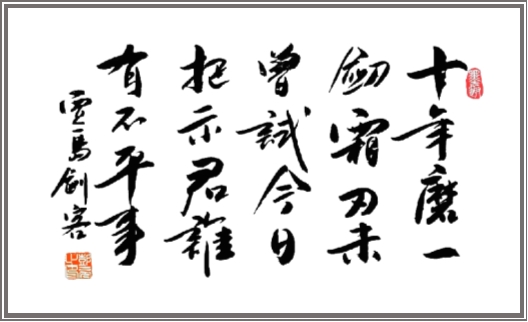 十年磨一
劒霜刃未
曾試今日
把示君誰
有不平事
賈島劍客